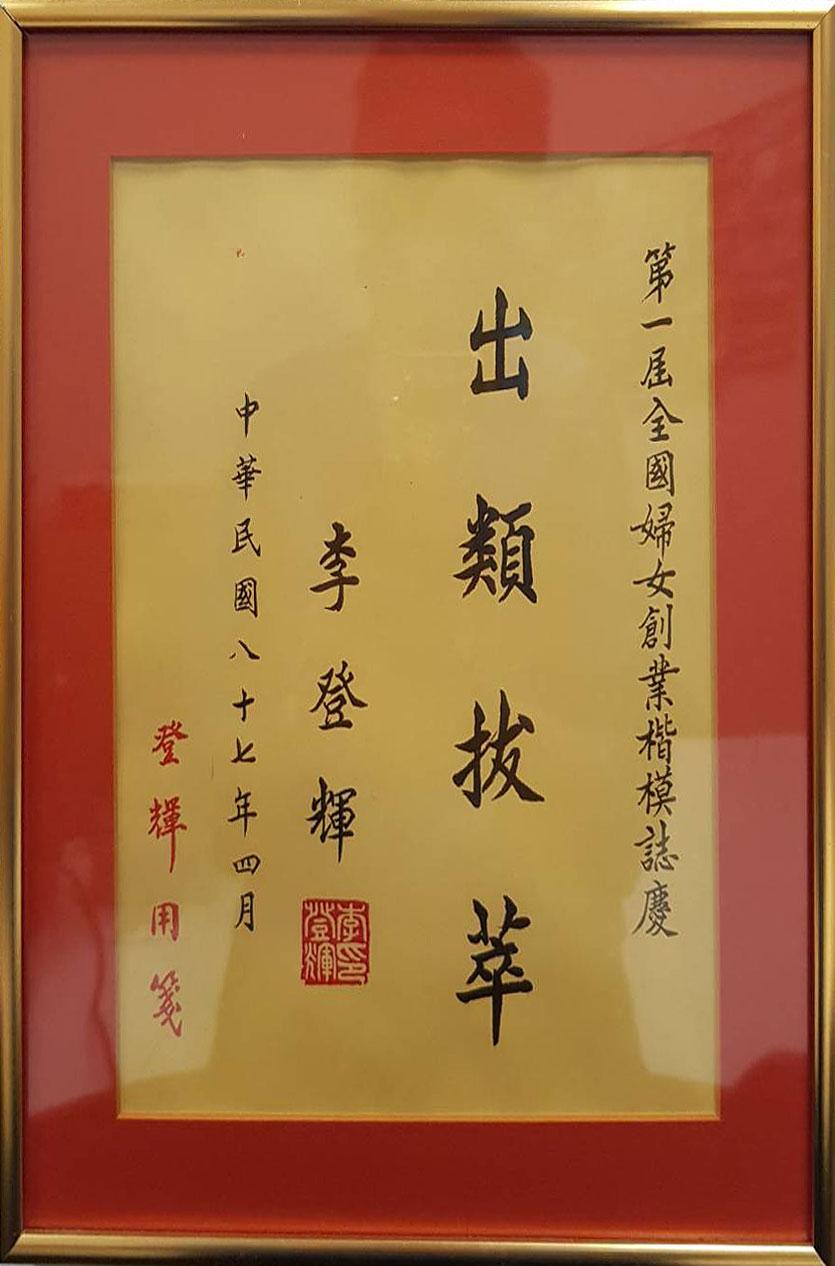 第一屆全國婦女創業楷模誌慶
出類拔萃
李登輝
李登輝印
中華民國八十七年四月
登輝用箋